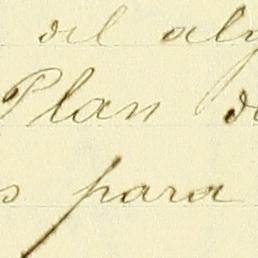 del alg
Plan d
s para